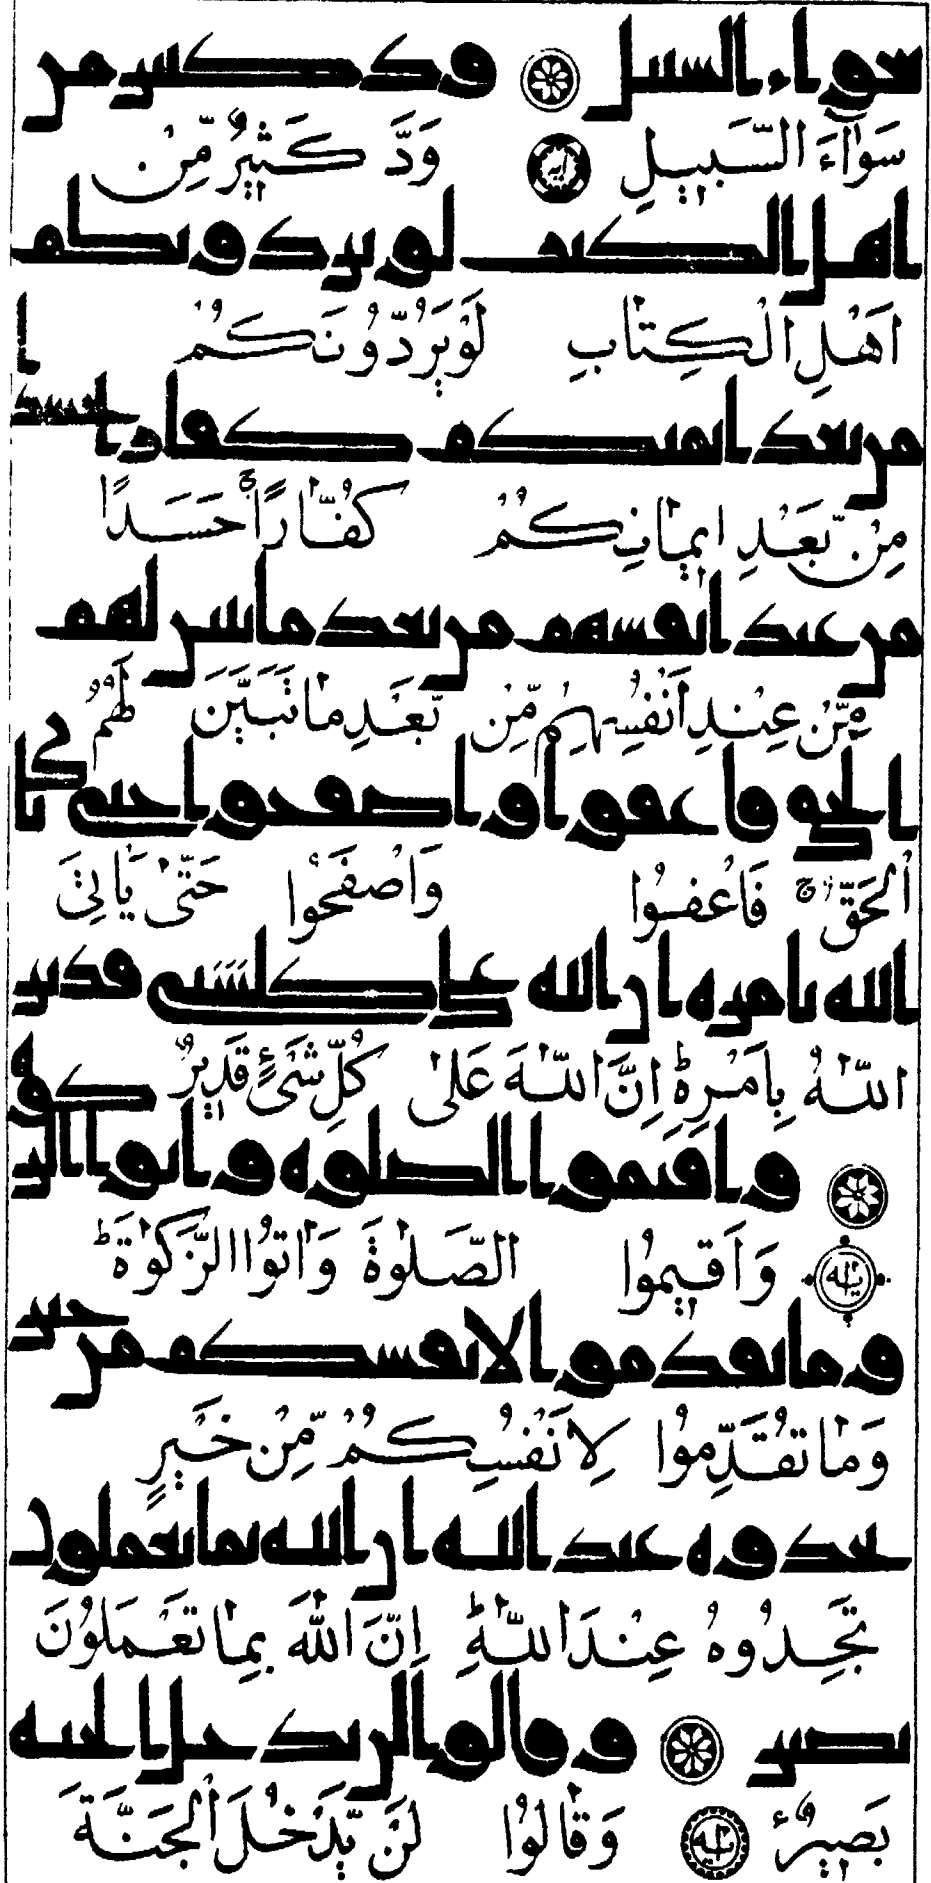 سواء السبيل ود كثير من
سَوَآءَ السَّبِيلِ وَدَّ كَثِيرٌ مِّنْ
اهل الكتب لو يردونكم
اَهْلِ الْكِتَابِ لَوْيَرُدُّونَكُمْ
من بعد ايمنكم كفارا حسدا
مِنْ بَّعْدِ اِيمَانِكُمْ كُفَّارًاۚ حَسَدًا
من عند انفسهم من بعد ما تبين لهم
مِّنْ عِنْدِ اَنْفُسِهِمْ مِّنْ بَّعْدِ مَا تَبَيَّنَ لَهُمُ
الحق فاعفوا واصفحوا حتى يا تى
الْحَقُّۚ فَاعْفُوا وَاصْفَحُوا حَتّٰى يَاْتِىَ
الله بامره ان الله على كل شى قدير
اللّٰهُ بِاَمْرِهٖؕ اِنَّ اللّٰهَ عَلٰى كُلِّ شَىْءٍ قَدِيرٌ
واقيموا الصلوه واتوا الز كوه
وَاَقِيمُوا الصَّلٰوةَ وَاٰتُوا الزَّكٰوةَؕ
وما تقدموا لانفسكم من خير
وَمَا تُقَدِّمُوا لِاَنْفُسِكُمْ مِّنْ خَيْرٍ
تجدوه عند الله ان الله بما تعملون
تَجِدُوهُ عِنْدَ اللّٰهِؕ اِنَّ اللّٰهَ بِمَا تَعْمَلُونَ
بصير وقالوا لن يدخل الجنه
بَصِيرٌ وَقَالُوا لَنْ يَّدْخُلَ الْجَنَّةَ